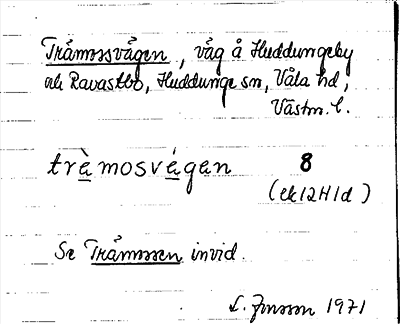 Tråmossvägen, väg å Huddungeby
och Ravastbo, Huddunge sn, Våla hd,
Västm. l.
trå̀mosvä́gen 8
(ek 12H1d)
Se Tråmossen invid.
L. Jonsson 1971